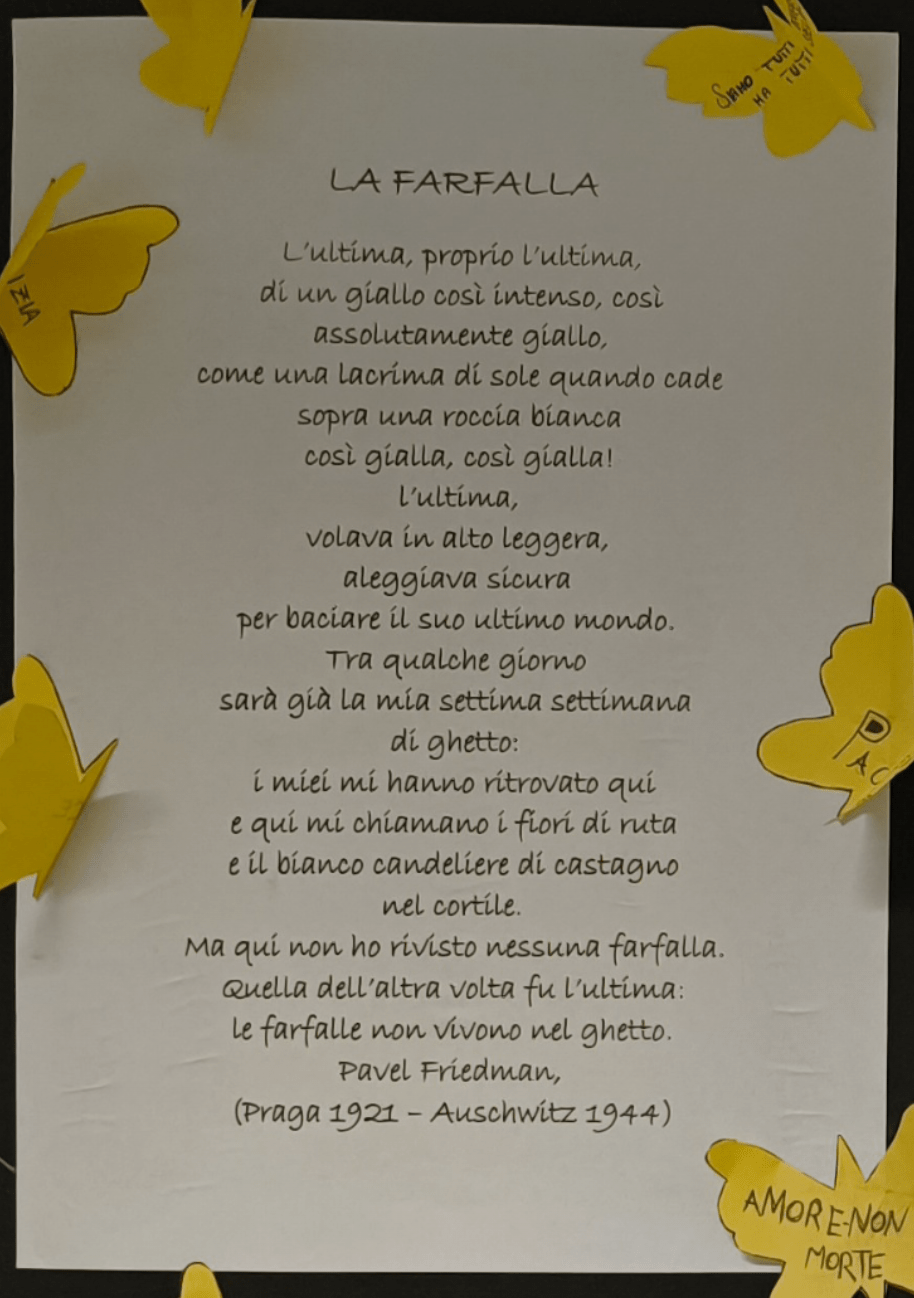 SIAMO TUTTI
MA TUTTI
LA FARFALLA
L'ultima, proprio l'ultima,
di un giallo così intenso, così
assolutamente giallo,
come una lacrima di sole quando cade
sopra una roccia bianca
così gialla, così gialla!
l'ultima,
volava in alto leggera,
aleggiava sicura
per baciare il suo ultimo mondo.
Tra qualche giorno
sarà già la mia settima settimana
di ghetto:
i miei mi hanno ritrovato qui
e qui mi chiamano i fiori di ruta
e il bianco candeliere di castagno
nel cortile.
Ma qui non ho rivisto nessuna farfalla.
Quella dell'altra volta fu l'ultima:
le farfalle non vivono nel ghetto.
Pavel Friedman,
(Praga 1921 – Auschwitz 1944)
IZIA
PAC
AMORE-NON
MORTE